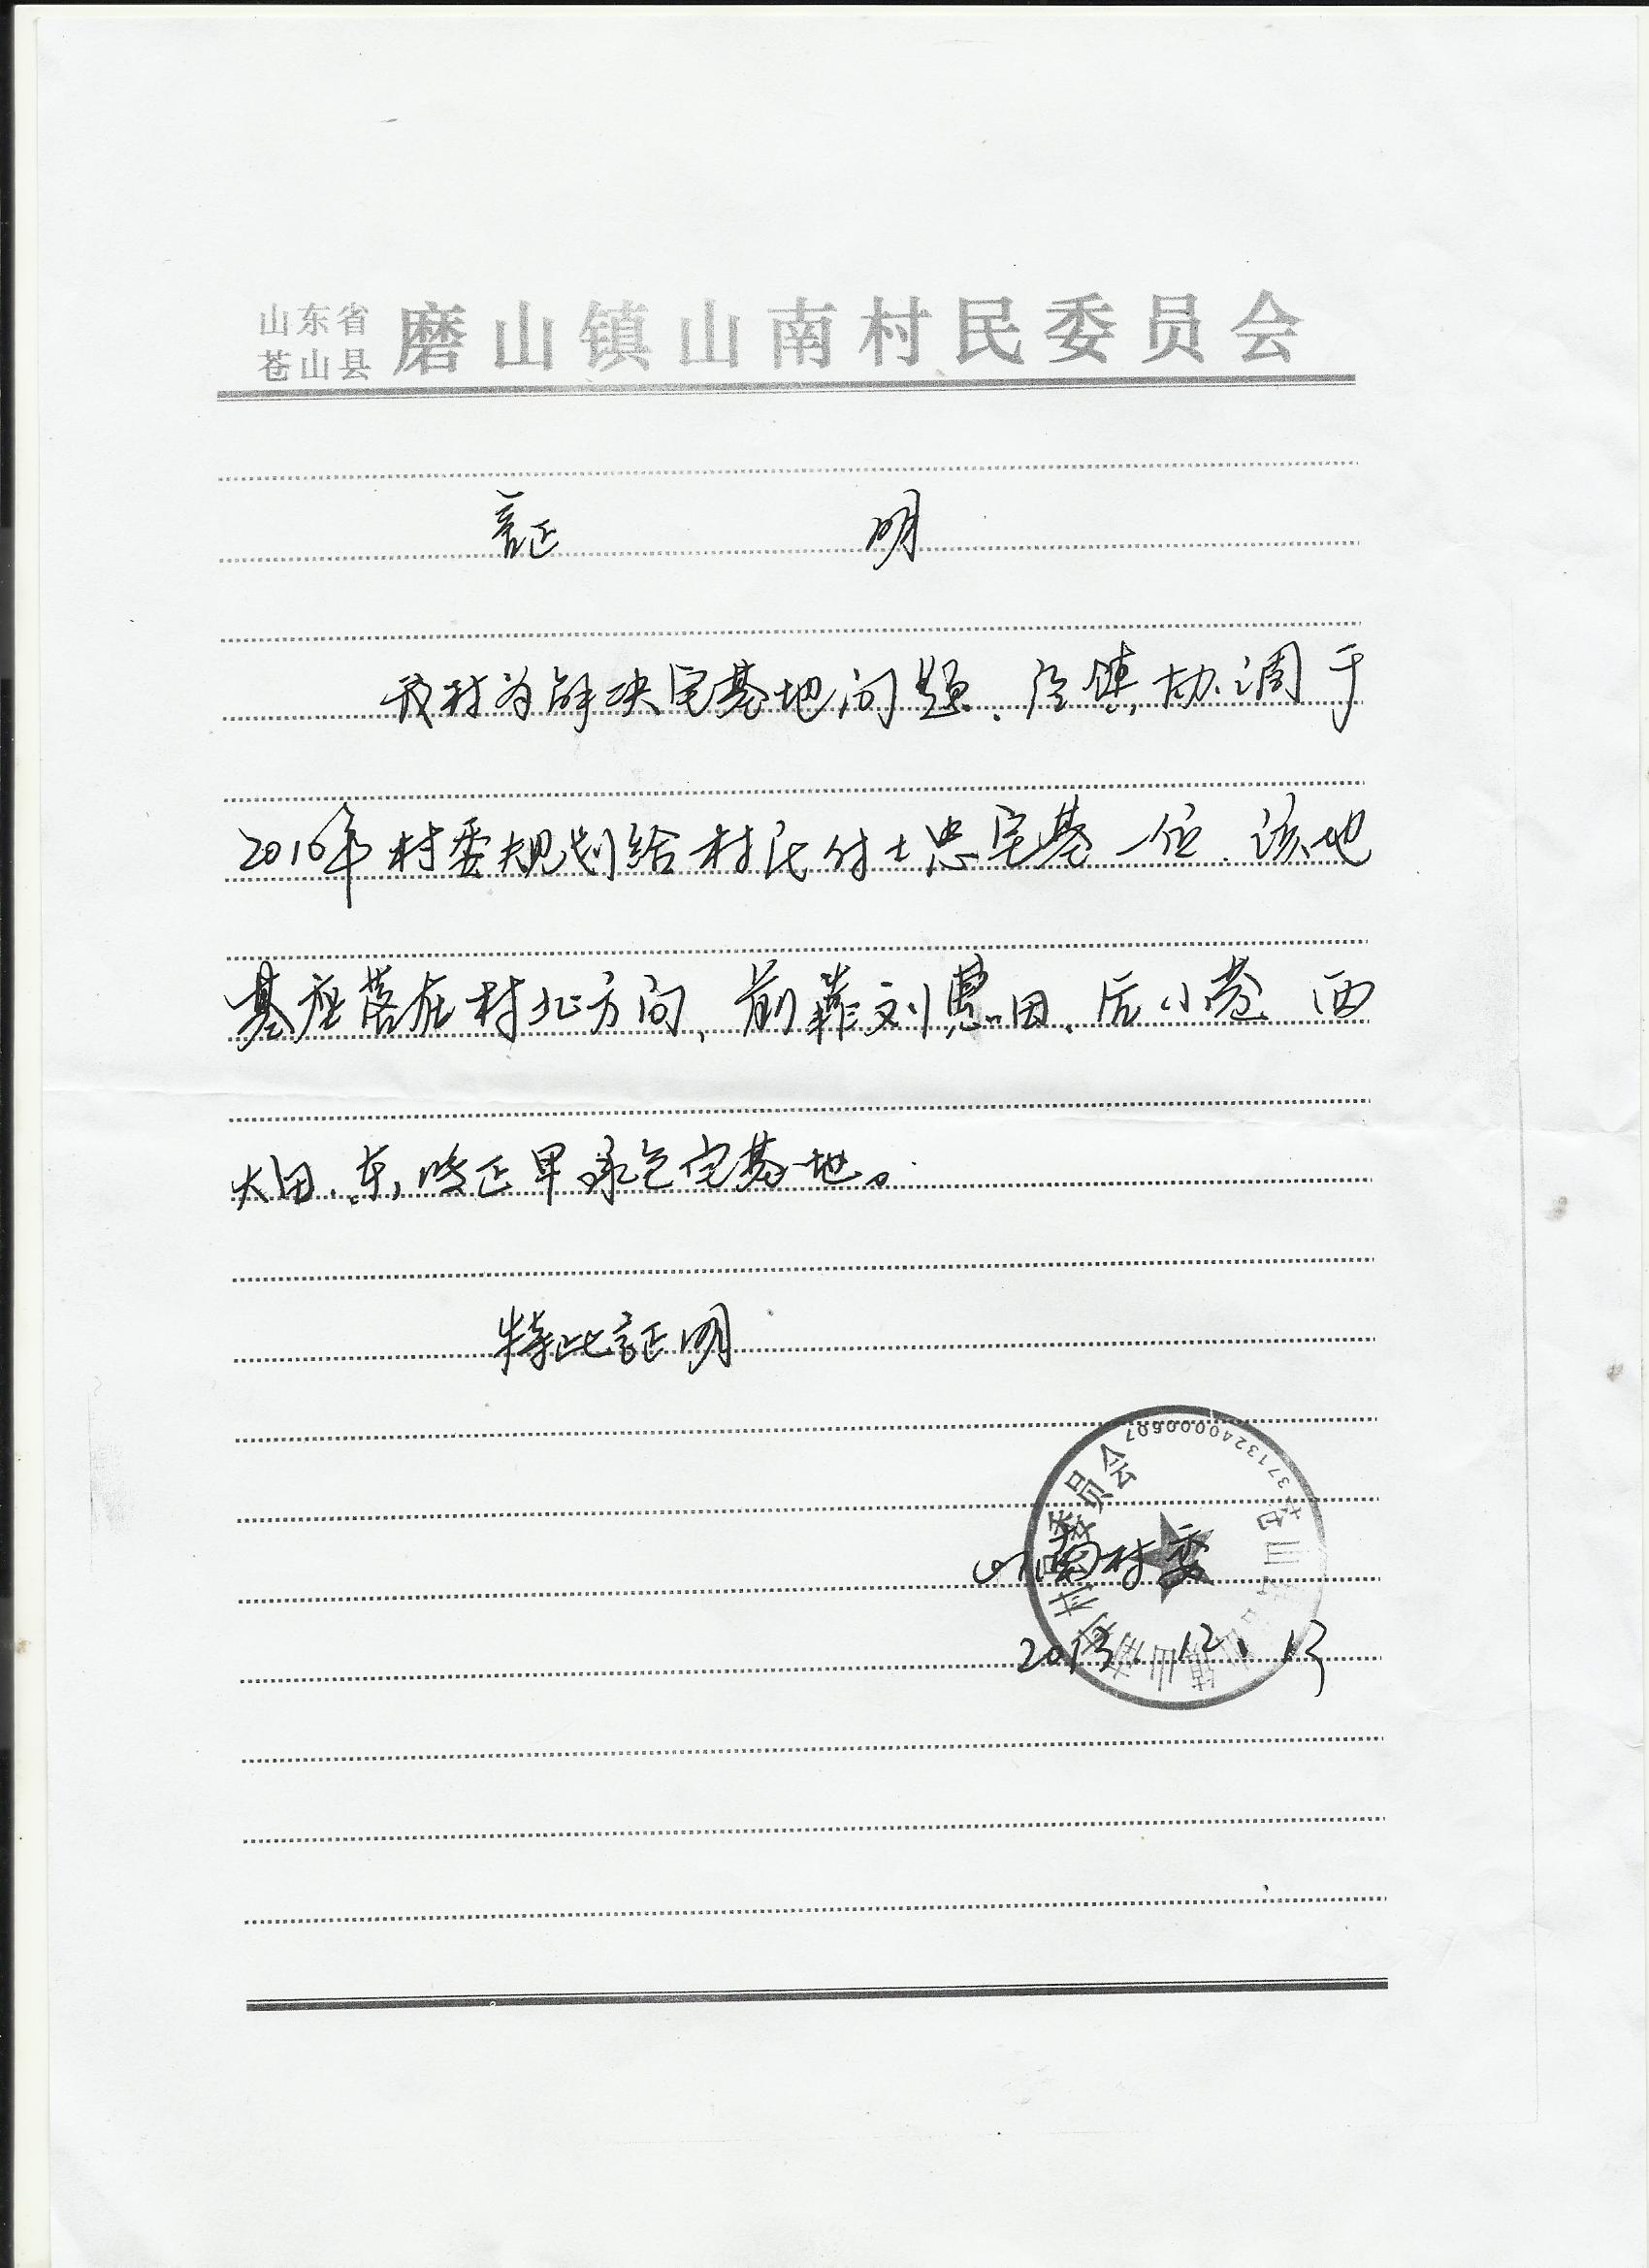 山东省
苍山县
磨山镇山南村民委员会
証 明
我村为解决宅基地问题、经镇协调于
2010年村委规划给村民付士忠宅基一位、该地
基座落在村北方向、前靠刘惠田、后小巷 西
大田、东临正早宅基地。
特此証明
山南村委
2013.12.13
苍山县磨山镇山南村村民委员会
3713240000607